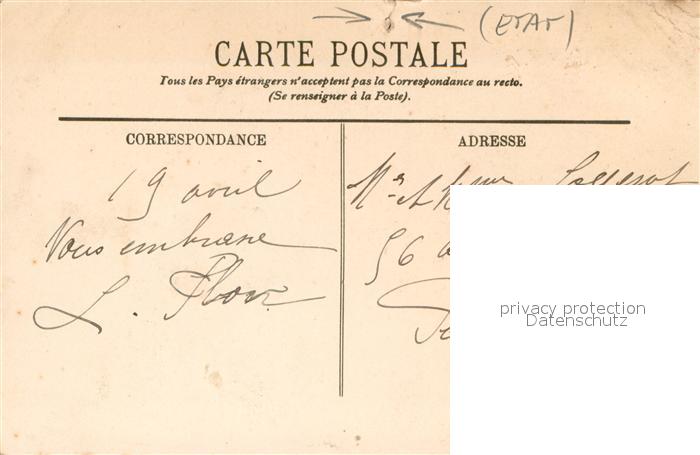 (ETAT)
CARTE POSTALE
Tous les Pays étrangers n'acceptent pas la Correspondance au recto.
(Se renseigner à la Poste).
CORRESPONDANCE
19 avril
Vous embrasse
L.
ADRESSE
Mr et Mme
56
privacy protection
Datenschutz